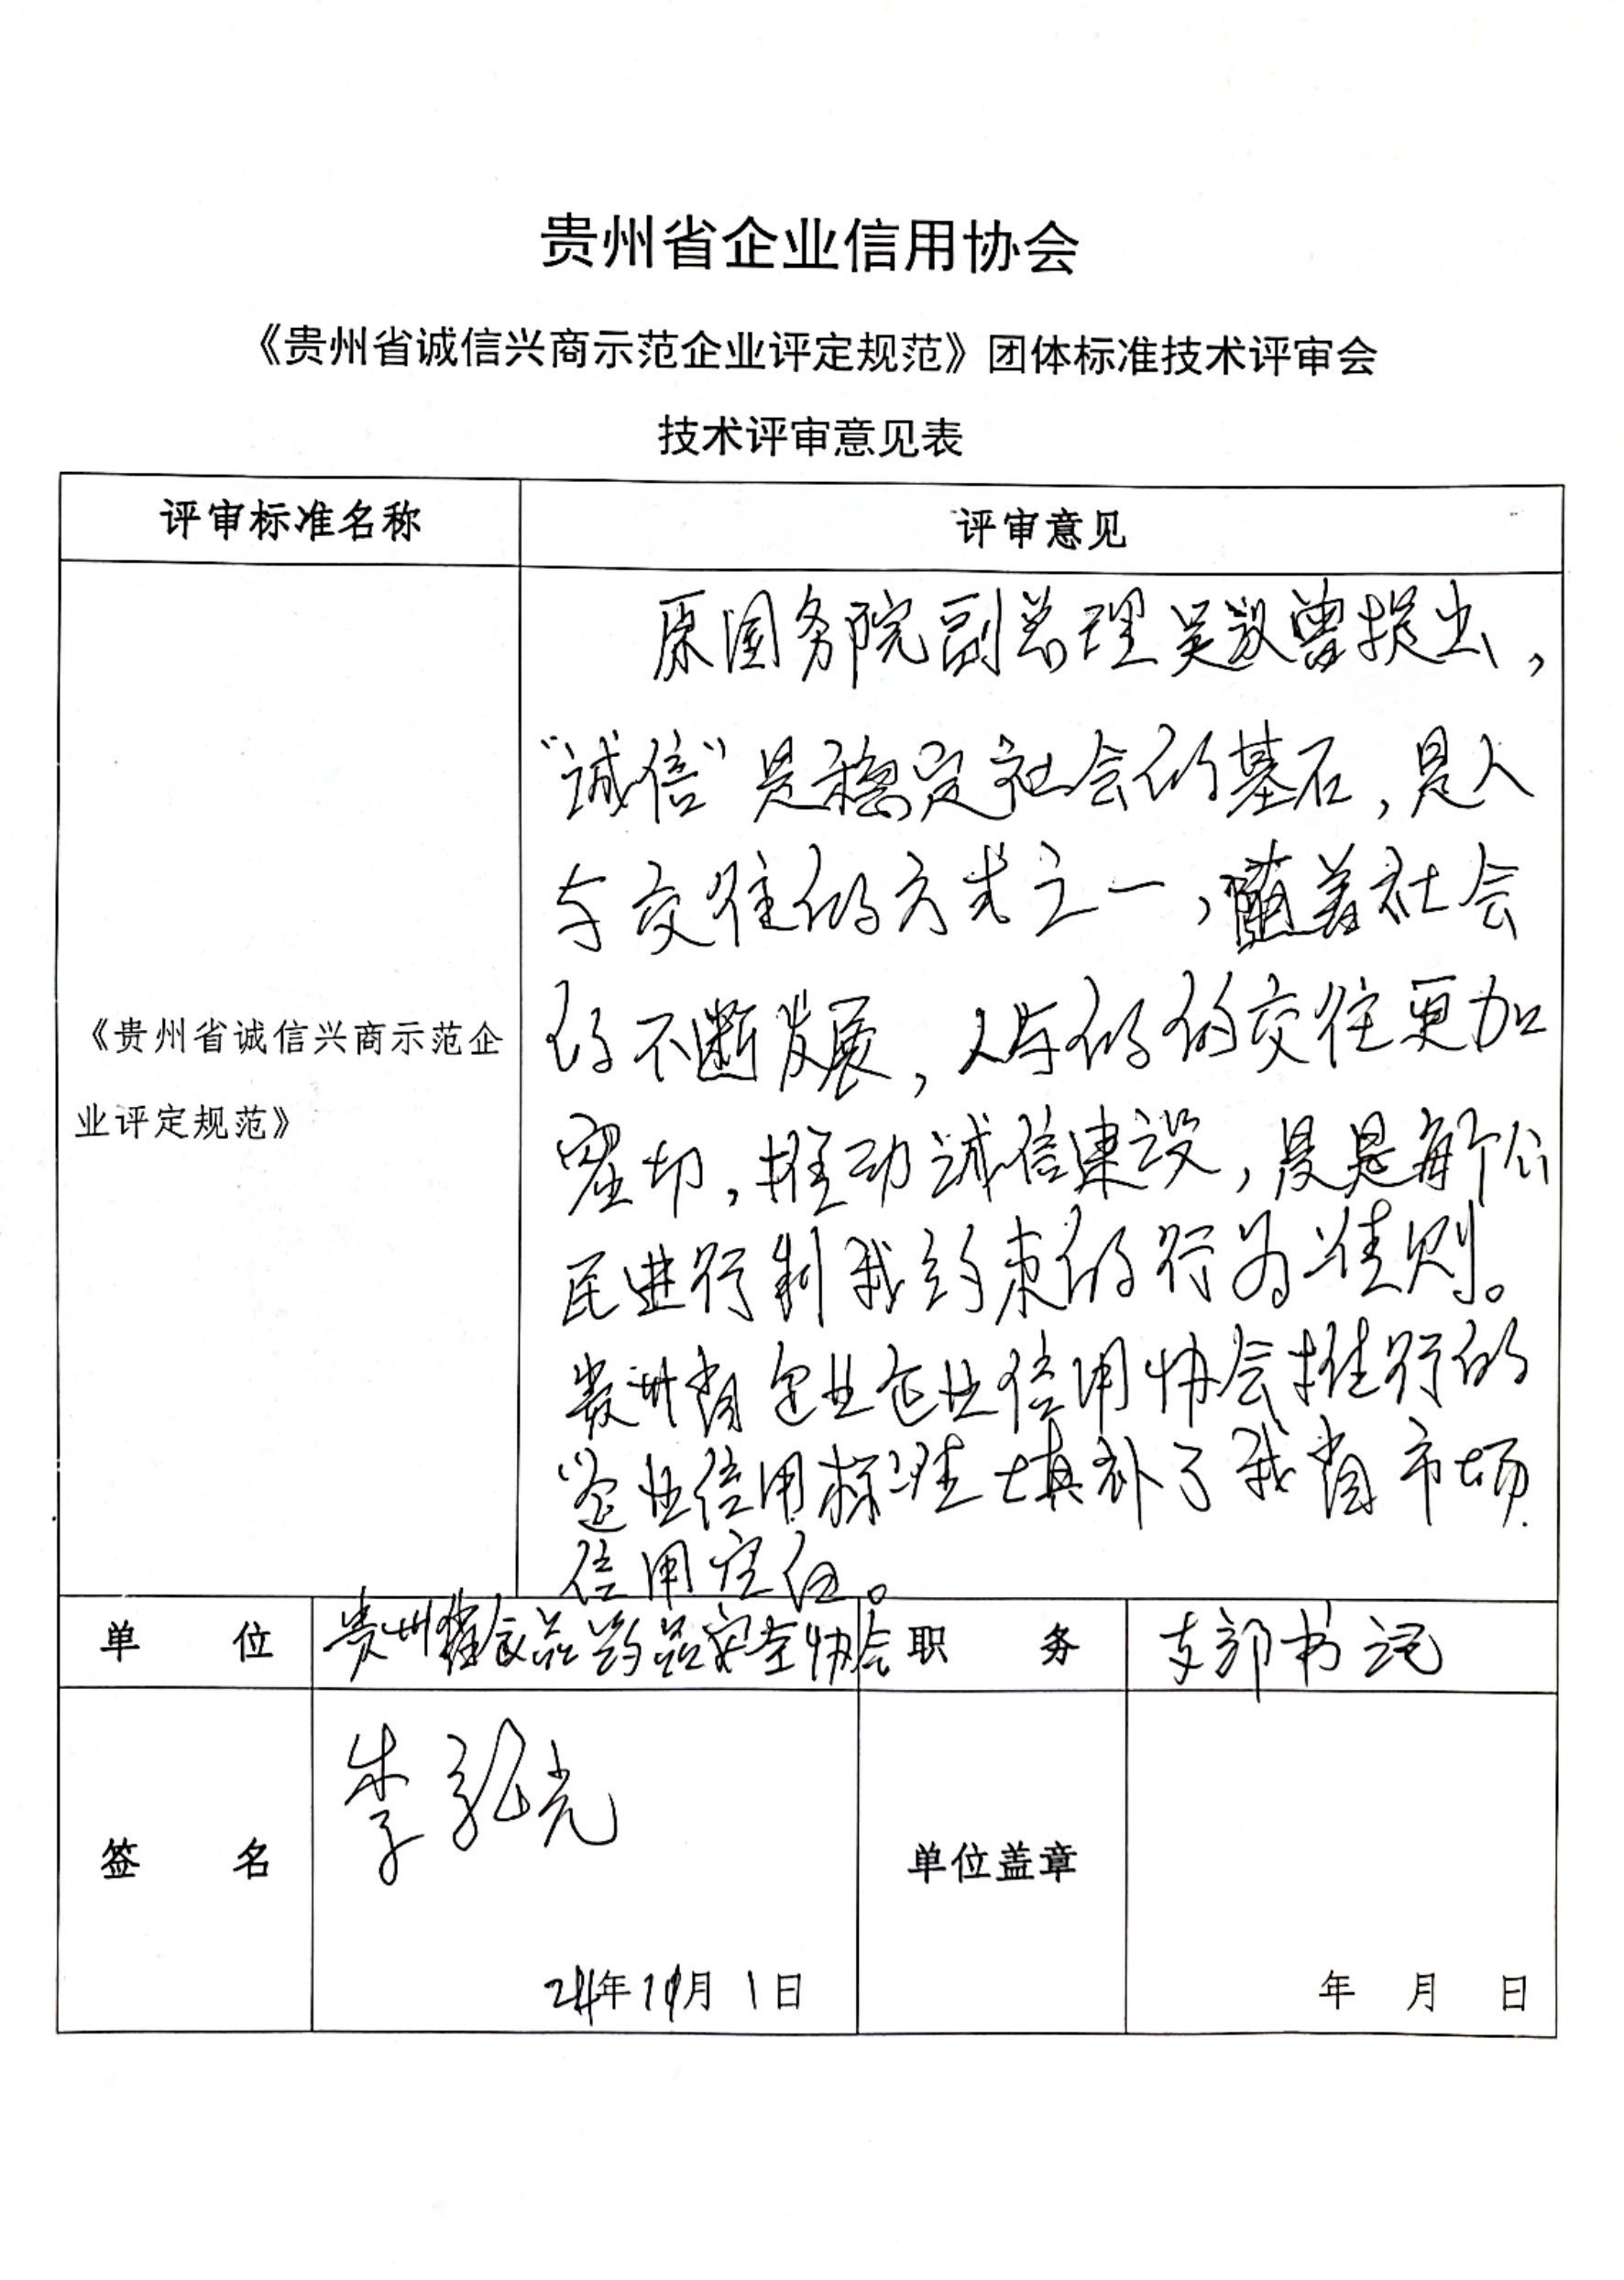 贵州省企业信用协会
《贵州省诚信兴商示范企业评定规范》团体标准技术评审会
技术评审意见表
评审标准名称
评审意见
原国务院副总理吴仪曾提出，
“诚信”是稳定社会的基石，是人
与交往的方式之一，随着社会
的不断发展，人与的的交往更加
密切，推动诚信建设，是每个公
民进行制我约束的行为准则。
贵州省企业企业信用协会推行的
企业信用标准填补了我省市场
信用空白。
《贵州省诚信兴商示范企
业评定规范》
单 位
贵州省食品药品安全协会
职 务
支部书记
签 名
李弘光
24年 月1日
单位盖章
年 月 日